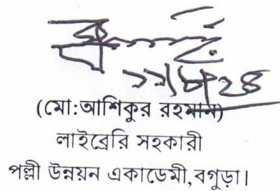 (মো:আশিকুর রহমান)
লাইব্রেরি সহকারী
পল্লী উন্নয়ন একাডেমী,বগুড়া।